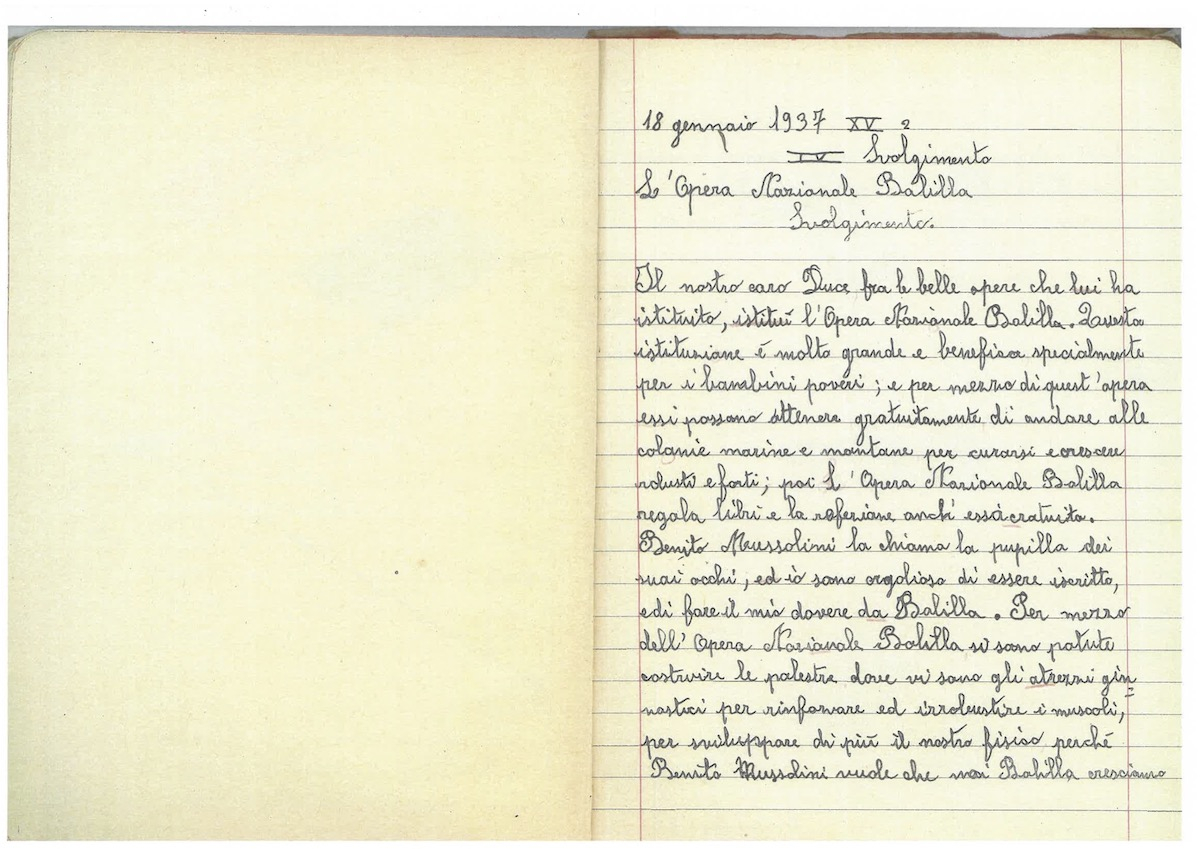 18 gennaio 1937 XV 2
IV Svolgimento
L'Opera Nazionale Balilla
Svolgimento.
Il nostro caro Duce fra le belle opere che lui ha
istituito, istituì l'Opera Nazionale Balilla. Questa
istituzione é molto grande e benefisce specialmente
per i bambini poveri; e per mezzo di quest'opera
essi possono ottenere gratuitamente di andare alle
colonie marine e montane per curarsi e crescere
robusti e forti; poi L'Opera Nazionale Balilla
regala libri e la refezione anch'essa cratuita.
Benito Mussolini la chiama la pupilla dei
suoi occhi, ed io sono orgolioso di essere iscritto,
e di fare il mio dovere da Balilla. Per mezzo
dell'Opera Nazionale Balilla si sono potute
costruire le palestre dove vi sono gli atrezzi gin=
nastici per rinforzare ed irrobustire i muscoli,
per sviluppare di più il nostro fisico perché
Benito Mussolini vuole che noi Balilla cresciamo